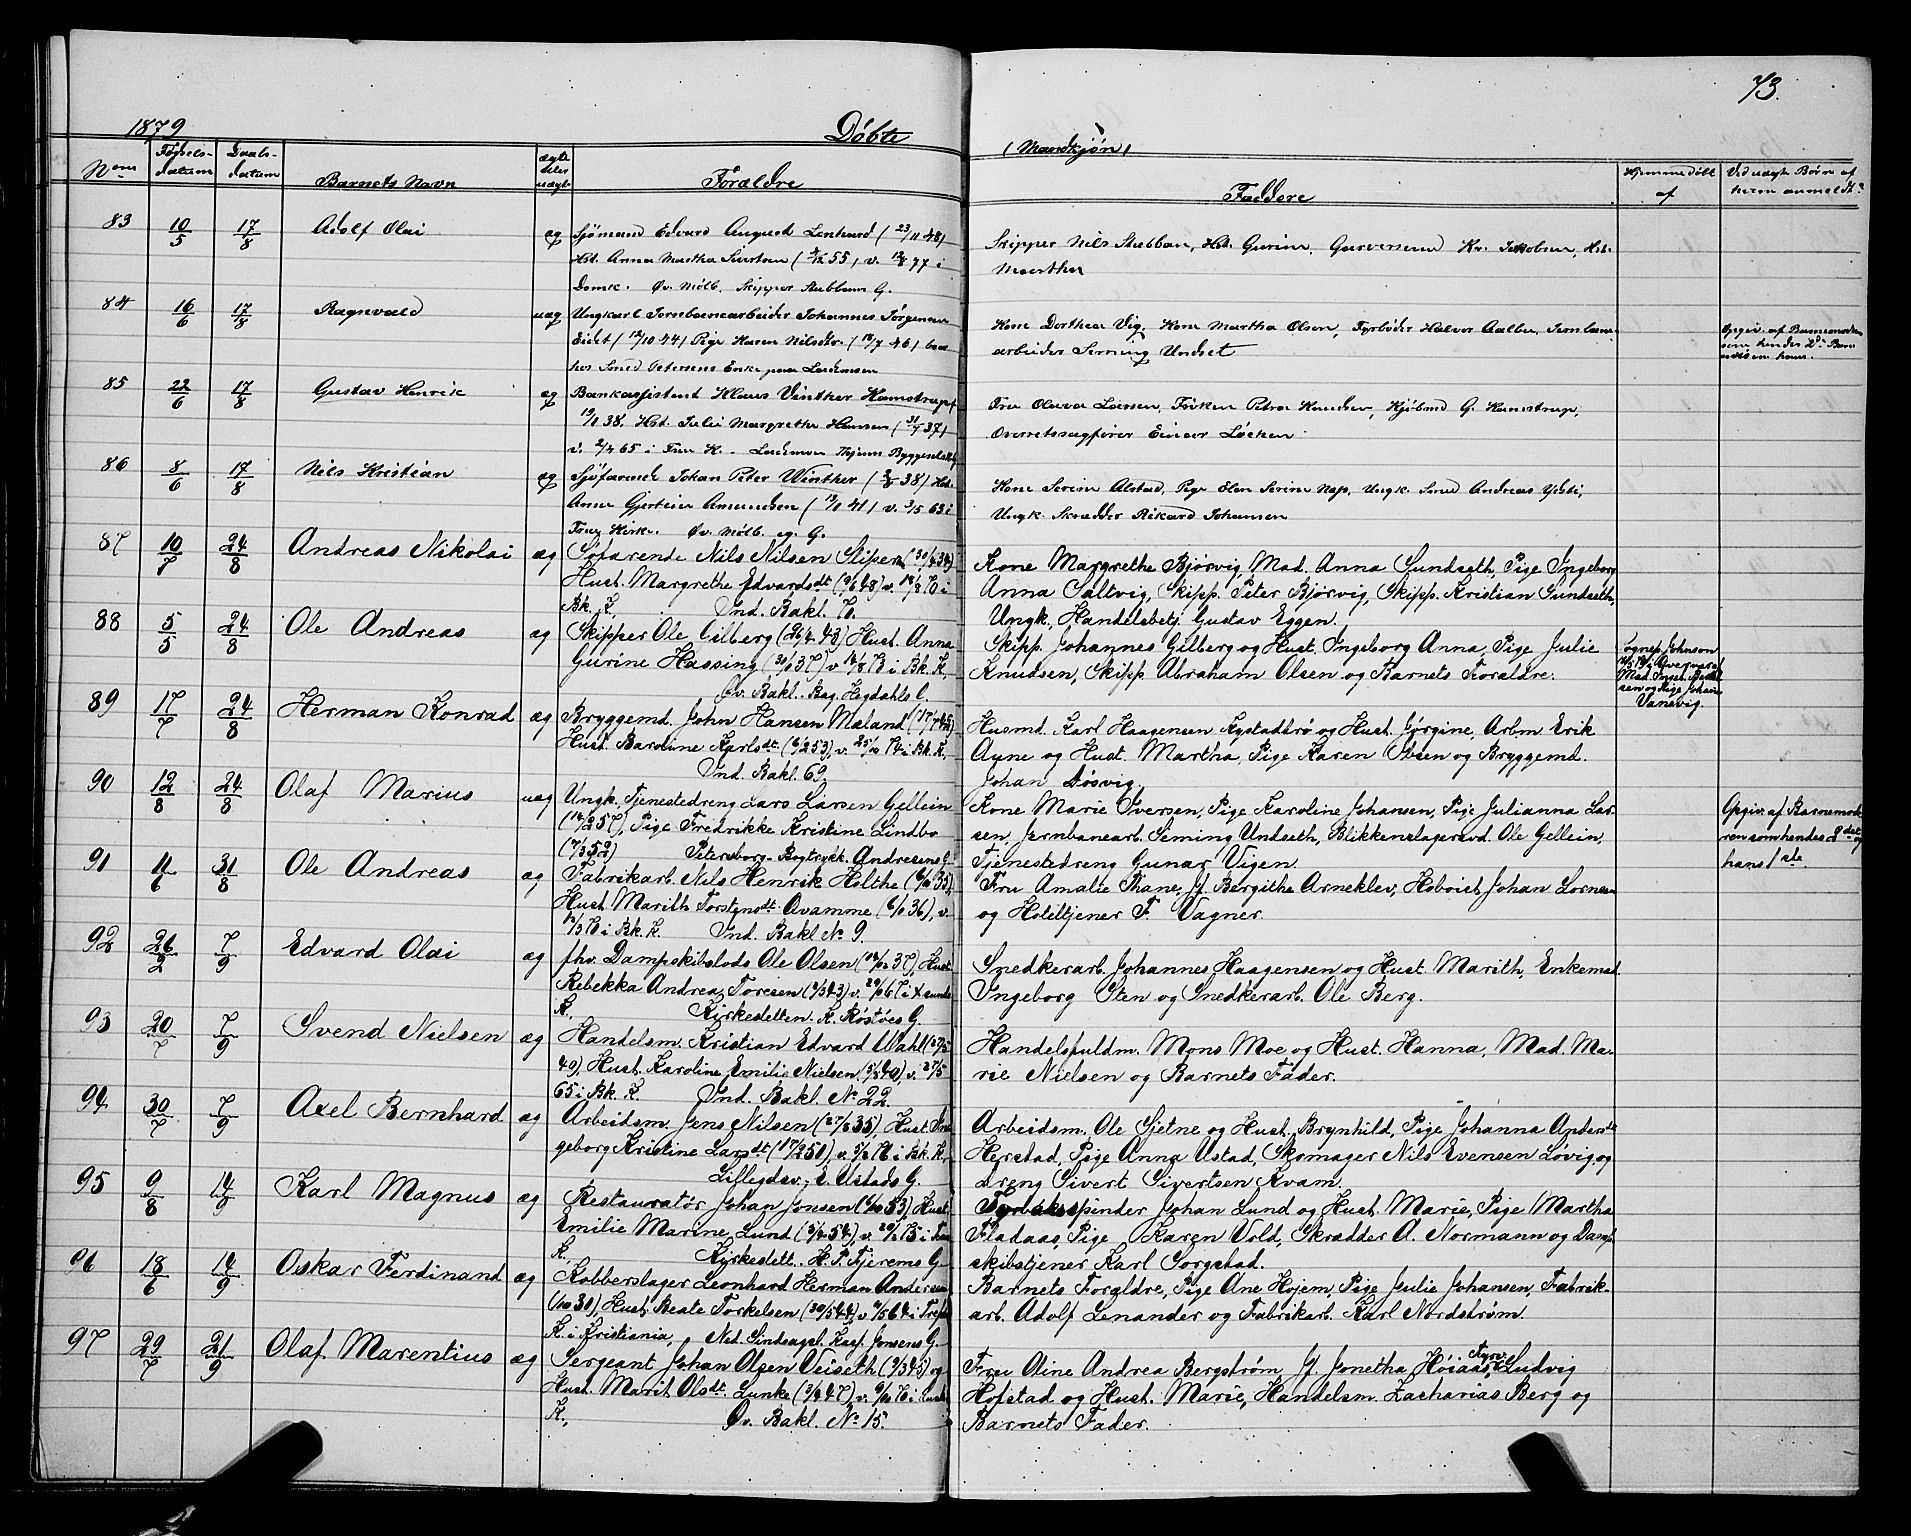 1879
Døbte
(Mandkjøn)
73.
Nom
Fødsels-datum
Daabs-datum
Barnets Navn
ægte eller uægte
Forældre
Faddere
Hjemmedøbt af
Ved uægte Børn af hvem anmeldt?
83 10/5 17/8 Adolf Olai æg Sjømand Edvard August Lenhard (23/11 48)
Hst. Anna Martha
Domk. Øv. Mølb. Skipper Stubbans G.
Skipper Nils Stubban, Hst. Gurine, Hst.
Marthea
84 16/6 17/8 Ragnvald uæg Ungkarl Jernbanearbeider Johannes Jørgensen
Eidet (12/10 44) Pige Karen Nilsdtr. (19/7 46) boer
hos Smed Petersens Enke paa Lademoen
Kone Dorthea Vig, Kone Martha Olsen, Fyrbøder Halvor Aalbu, Jernbane-
arbeider Serning Undset
Opgiv. af Barnemoderen
som hendes 2det Barn
85 22/6 17/8 Gustav Henrik æg Bankassistent Klaus Vinther Hamstrup (
19/1 38, Hst. Julie Margrethe Hansen (31/7 37)
v. 2/4 65 i Frue K. Lademoen
Fru Olava Larsen, Frøken Petra Knudsen, Kjøbmd G. Hamstrup,
Overretssagfører Einar Løchen
86 8/6 17/8 Nils Kristian æg Sjøfarende Johan Peter Winther 38) Hst.
Anne Gjertine Amundsen 41) v. 2/5 63 i
Frue Kirke. Øv. Mølb. eg. G.
Kone Serine Alstad, Pige Elen Serine Nap, Ungk. Smed Andreas
Ungk. Skrædder Rikard Johansen
87 10/7 24/8 Andreas Nikolai æg Søfarende Nils Nilsen Stiper (30/4 34)
Hust. Margrethe Edvardsdt (9/6 48) v. 14/8 70 i
Bk. K. Ind. Bakl. 70.
Kone Margrethe Bjørvig, Mad. Anna Sundseth, Pige Ingeborg
Anna Saltvig, Skipp. Peter Bjørvig, Skipp. Kristian Sundseth,
Ungk. Handelsbetj. Gustav Eggen.
88 5/5 24/8 Ole Andreas æg Skipper Ole Gilberg (26/4 43) Hust. Anna
Gurine Hassing 37) v. 14/8 73 i Bk. K.
Øv. Bakl. Bag. Hegdahls G.
Skipp. Johannes Gilberg og Hust. Ingeborg Anna, Pige Julie
Knudsen, Skipp. Abraham Olsen og Barnets Forældre.
Sognep. Johnson
89 17/7 24/8 Herman Konrad æg Bryggemd. John Hansen Mæland (17/7 45)
Hust. Baroline Karlsdt. (6/2 53), v. 25/10 74 i Bk. K.
Ind. Bakl. 69.
Husmd. Karl Haagensen Kystadtrø og Hust. Jørgine, Arbm Erik
Aune og Hust. Martha, Pige Karen Ibsen og Bryggemd.
Johan Døsvig.
90 12/8 24/8 Olaf Marius uæg Ungk. Tjenestedreng Lars Larsen Gellein
(14/2 57), Pige Fredrikke Kristine Lindbo
(7/3 52) Petersborg - Bogtrykk. Andresens G.
Kone Marie Iversen, Pige Karoline Johansen, Pige Julianna Lar-
sen, Jernbanearb. Seming Undseth, Blikkenslagersvd. Ole Gellein,
Tjenestedreng Gunar Vigen.
Opgiv. af Barnemode-
ren som hendes 2det og
hans 1ste
91 11/6 31/8 Ole Andreas æg Fabrikarb. Nils Henrik Holthe (6/10 35),
Hust. Marith Torstensdt. Qvamme 36), v.
i Bk. K. Ind. Bakl No 9.
Fru Amalie Thane, Jf. Bergithe Arneklev, Hoboist Johan Lornsen
og Hoteltjener F. Vagner.
92 26/2 7/9 Edvard Olai æg fhv. Dampskibslods Ole Olsen 37), Hust.
Rebekka Andrea Toresen (2/3 43) v. 29/10 67 i Xsunds
K. Kirkesletten. K. Røstøes G.
Snedkerarb. Johannes Haagensen og Hust. Marith, Enkemad.
Ingeborg Sten og Snedkerarb. Ole Berg.
93 20/7 7/9 Svend Nielsen æg Handelsm. Kristian Edvard Wahl (27/5
40), Hust. Karoline Emilie Nielsen 40), v. 27/5
65 i Bk. K. Ind. Bakl. No 22.
Handelsfuldm. Mons Moe og Hust. Hanna, Mad. Ma-
rie Nielsen og Barnets Fader.
94 30/7 7/9 Axel Bernhard æg Arbeidsm. Jens Nilsen (27/8 35), Hust. In-
geborg Kristine Larsdt (17/2 50), v. i Bk. K.
Lillegdsv., E. Ustads G.
Arbeidsm. Ole Sjetne og Hust. Brynhild, Pige Johanna Andersdt
Herstad, Pige Anna Ustad, Skomager Nils Evensen Løvig og
dreng Sivert Sivertsen Kvam.
95 9/8 14/9 Karl Magnus æg Restauratør Johan Jonsen (6/10 53), Hust.
Emilie Marine Lund (5/4 54), v. 20/2 73 i Frue
K. Kirkeslett. H. P. Fjerems G.
Tobakspinder Johan Lund og Hust. Marie, Pige Martha
Fladaas, Pige Karen Vold, Skrædder A. Normann og Damp-
skibstjener Karl Sorgstad.
96 18/6 14/9 Oskar Ferdinand æg Kobberslager Leonhard Herman Andersen
(1/10 30), Hust. Beate Torkelsen (30/5 44) v. 5/5 64 i Trefol.
K. i Kristiania, Ned. Sindsaspl. Kasp. Jonsens G.
Barnets Forældre, Pige Ane Hojem, Pige Julie Johansen, Fabrik-
arb. Adolf Lenander og Fabrikarb. Karl Nordstrøm.
97 29/7 21/9 Olaf Marentius æg Sergeant Johan Olsen Veiseth (9/3 45) og
Hust. Marit Olsdt. Lunke (3/2 47), v. 9/10 70 i
K. Øv. Bakl. No 15.
Fru Oline Andrea Bergstrøm, Jf. Jonetha Høiaas, Fyrv. Ludvig
Hofstad og Hust. Marie, Handelsm. Zacharias Berg og
Barnets Fader.